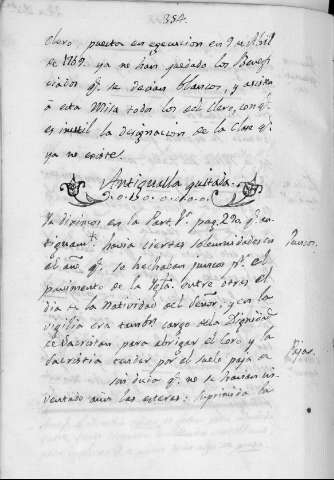 384.
Clero, puestos en egecusion en 9 de Abril
de 1769. ya no han quedado los Benefi
ciados qe. se decian blancos, y asista
à esta Misa todos los del Clero, con qe.
es inutil la designacion de la Clase qe.
ya no existe.
Antigualla quitada.
Ya digimos en la Part. Va. pag. 292 qe. an
tiguamte. havia ciertas solemnidades en
el año qe. se hechaban juncos pr. el
Juncos.
pavimento de la Yglª. entre otras el
dia de la Natividad del Señor, y en la
vigilia era tambn. cargo de la Dignidad
de Sacristan para abrigar el Coro y la
Pajas.
Sacristia tender por el suelo paja en
sin duda qe. no se havian in
ventado aun las esteras: suprimida la